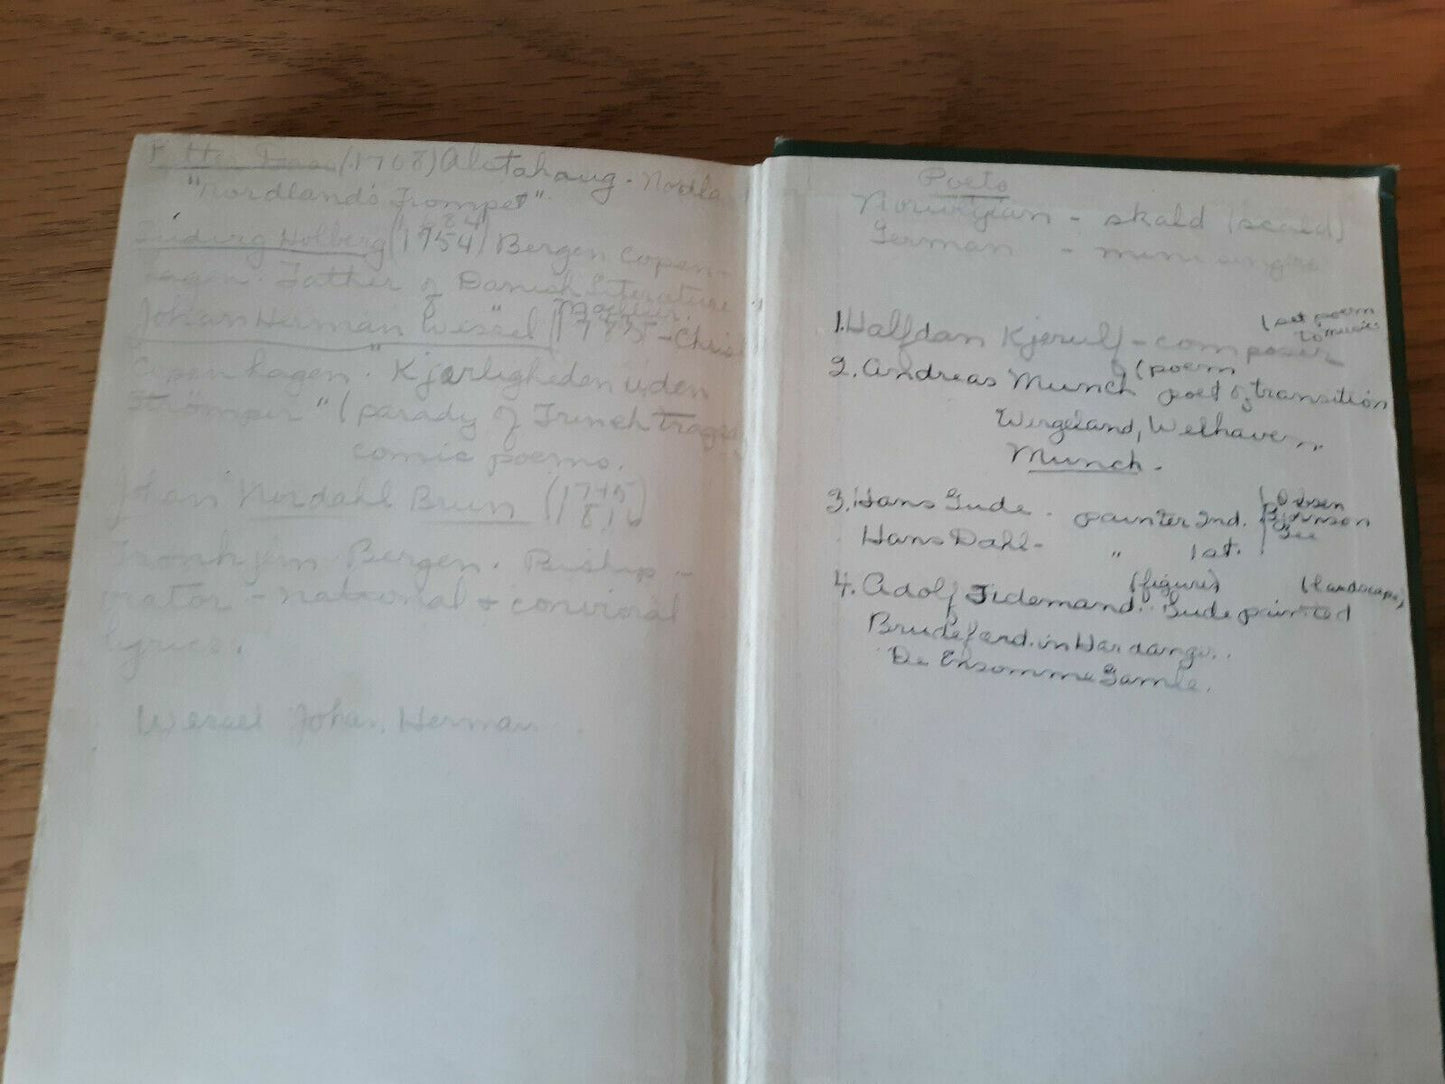 Petter Dass (1708) Alstahaug. Nordla
"Nordland's Trompet".
1684
Ludwig Holberg (1754) Bergen Copen-
hagen. Father of Danish Literature
Johan Herman Wessel (1785 - Chris
penhagen. "Kjærligheden uden
Strömper" (parady of French trage
comic poems.
Johan Nordahl Brun (1745
81
Tronhjem Bergen. Biship -
orator - national & convivial
lyrics.
Wessel Johan Herman
Poets
Norwegian - skald (scald)
German -
1. Halfdan Kjerulf - composer (set poem
to music
2. Andreas Munch (poem
poet of transition
Wergeland, Welhaven,
Munch.
3. Hans Gude. painter 2nd.
Hans Dahl - " 1st.
4. Adolf Tidemand. (figures) Gude painted (landscape)
Brudeferd. in Hardanger.
De Ensomme Gamle.